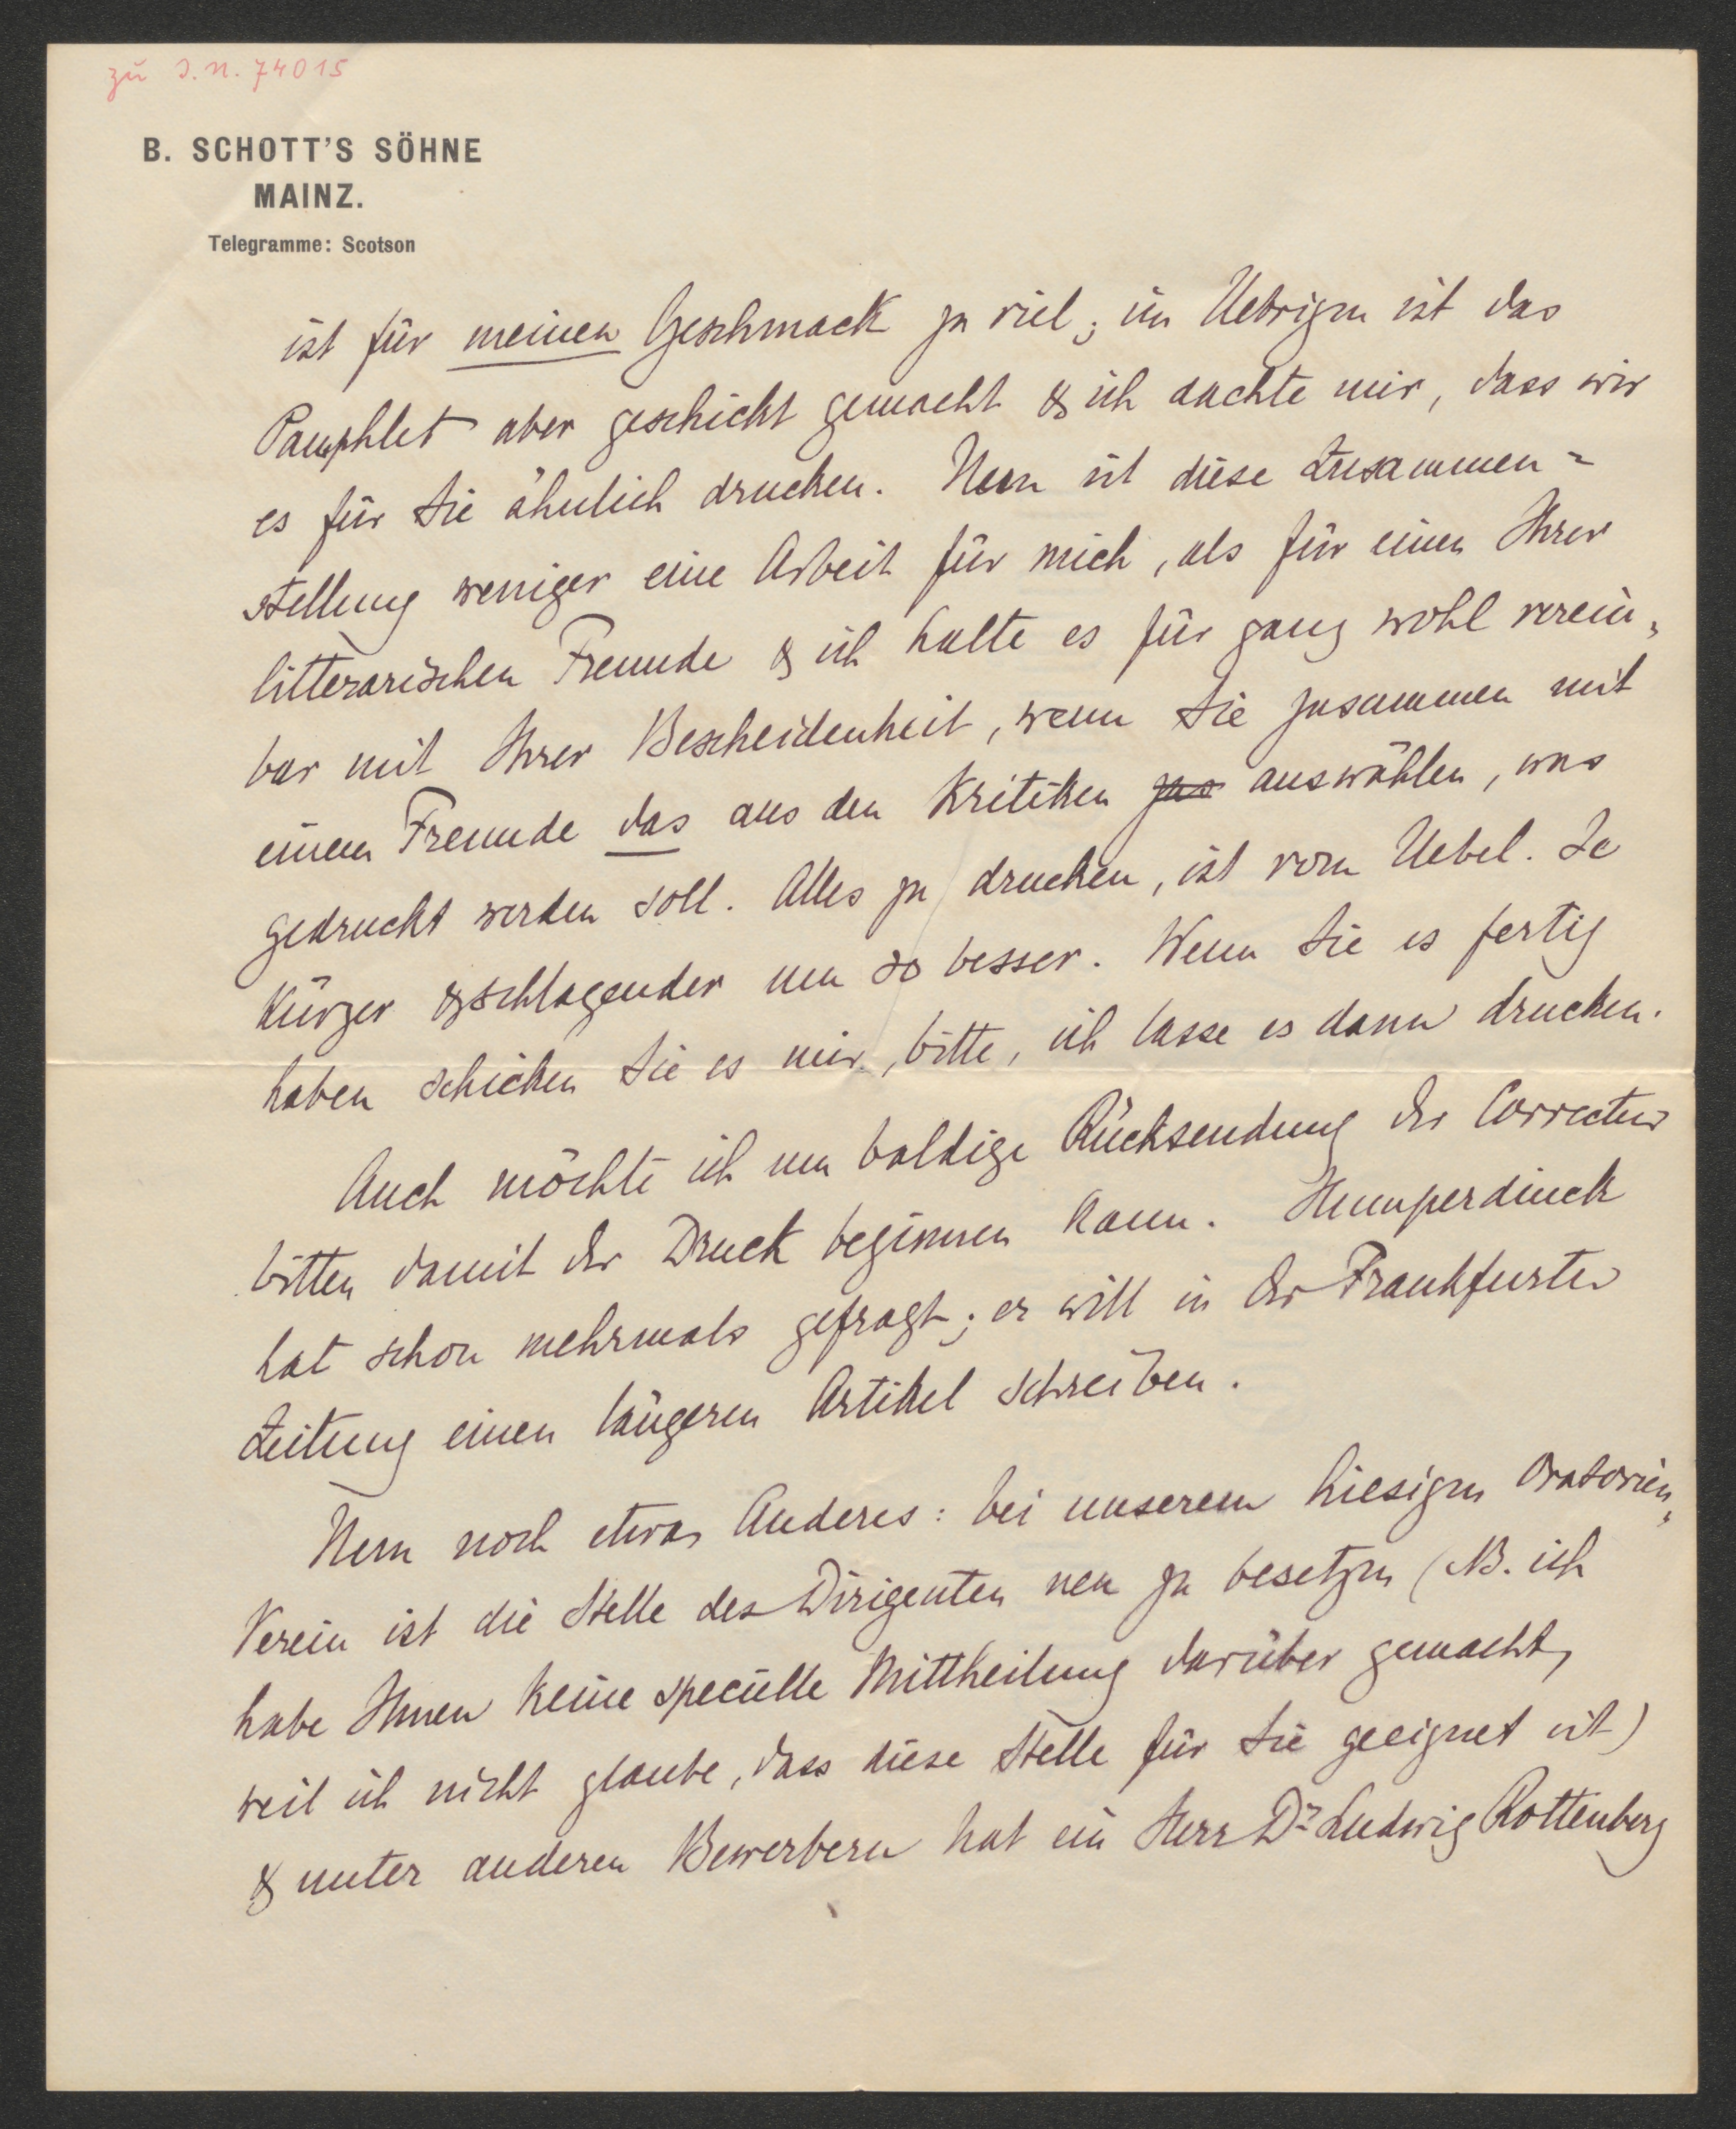 zu I.N. 74015
B. SCHOTT'S SÖHNE
MAINZ.
Telegramme: Scotson
ist für meinen Geschmack zu viel; im Uebrigen ist das
Pamphlet aber geschickt gemacht & ich dachte mir, dass wir
es für Sie ähnlich drucken. Nun ist diese Zusammen=
stellung weniger eine Arbeit für mich, als für einen Ihrer
litterarischen Freunde & ich halte es für ganz wohl verein=
bar mit Ihrer Bescheidenheit, wenn Sie zusammen mit
einem Freunde das aus den Kritiken auswählen, was
gedruckt werden soll. Alles zu drucken, ist vom Uebel. Je
kürzer & schlagender um so besser. Wenn Sie es fertig
haben schicken Sie es mir, bitte, ich lasse es dann drucken.
Auch möchte ich um baldige Rücksendung der Correctur
bitten damit der Druck beginnen kann. Humperdinck
hat schon mehrmals gefragt; er will in der Frankfurter
Zeitung einen längeren Artikel schreiben.
Nun noch etwas Anderes: bei unserem hiesigen Oratorien=
Verein ist die Stelle des Dirigenten neu zu besetzen (NB. ich
habe Ihnen keine specielle Mittheilung darüber gemacht,
weil ich nicht glaube, dass diese Stelle für Sie geeignet ist)
& unter anderen Bewerbern hat ein Herr Dr Ludwig Rottenberg